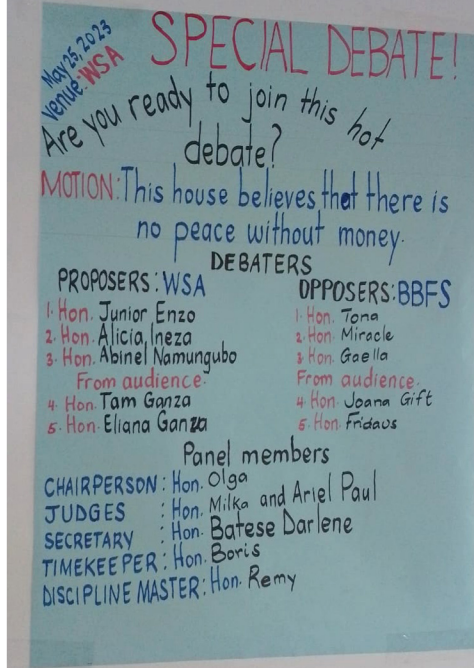 May 25, 2023
Venue: WSA
SPECIAL DEBATE!
Are you ready to join this hot
debate?
MOTION: This house believes that there is
no peace without money.
DEBATERS
PROPOSERS: WSA
1. Hon. Junior Enzo
2. Hon. Alicia Ineza
3. Hon. Abinel Namungubo
From audience.
4. Hon. Tam Ganza
5. Hon. Eliana Ganza
OPPOSERS: BBFS
1. Hon. Tona
2. Hon. Miracle
3. Hon. Gaella
From audience.
4. Hon. Joana Gift
5. Hon. Fridaus
Panel members
CHAIRPERSON: Hon. Olga
JUDGES : Hon. Milka and Ariel Paul
SECRETARY : Hon. Batese Darlene
TIMEKEEPER: Hon. Boris
DISCIPLINE MASTER: Hon. Remy